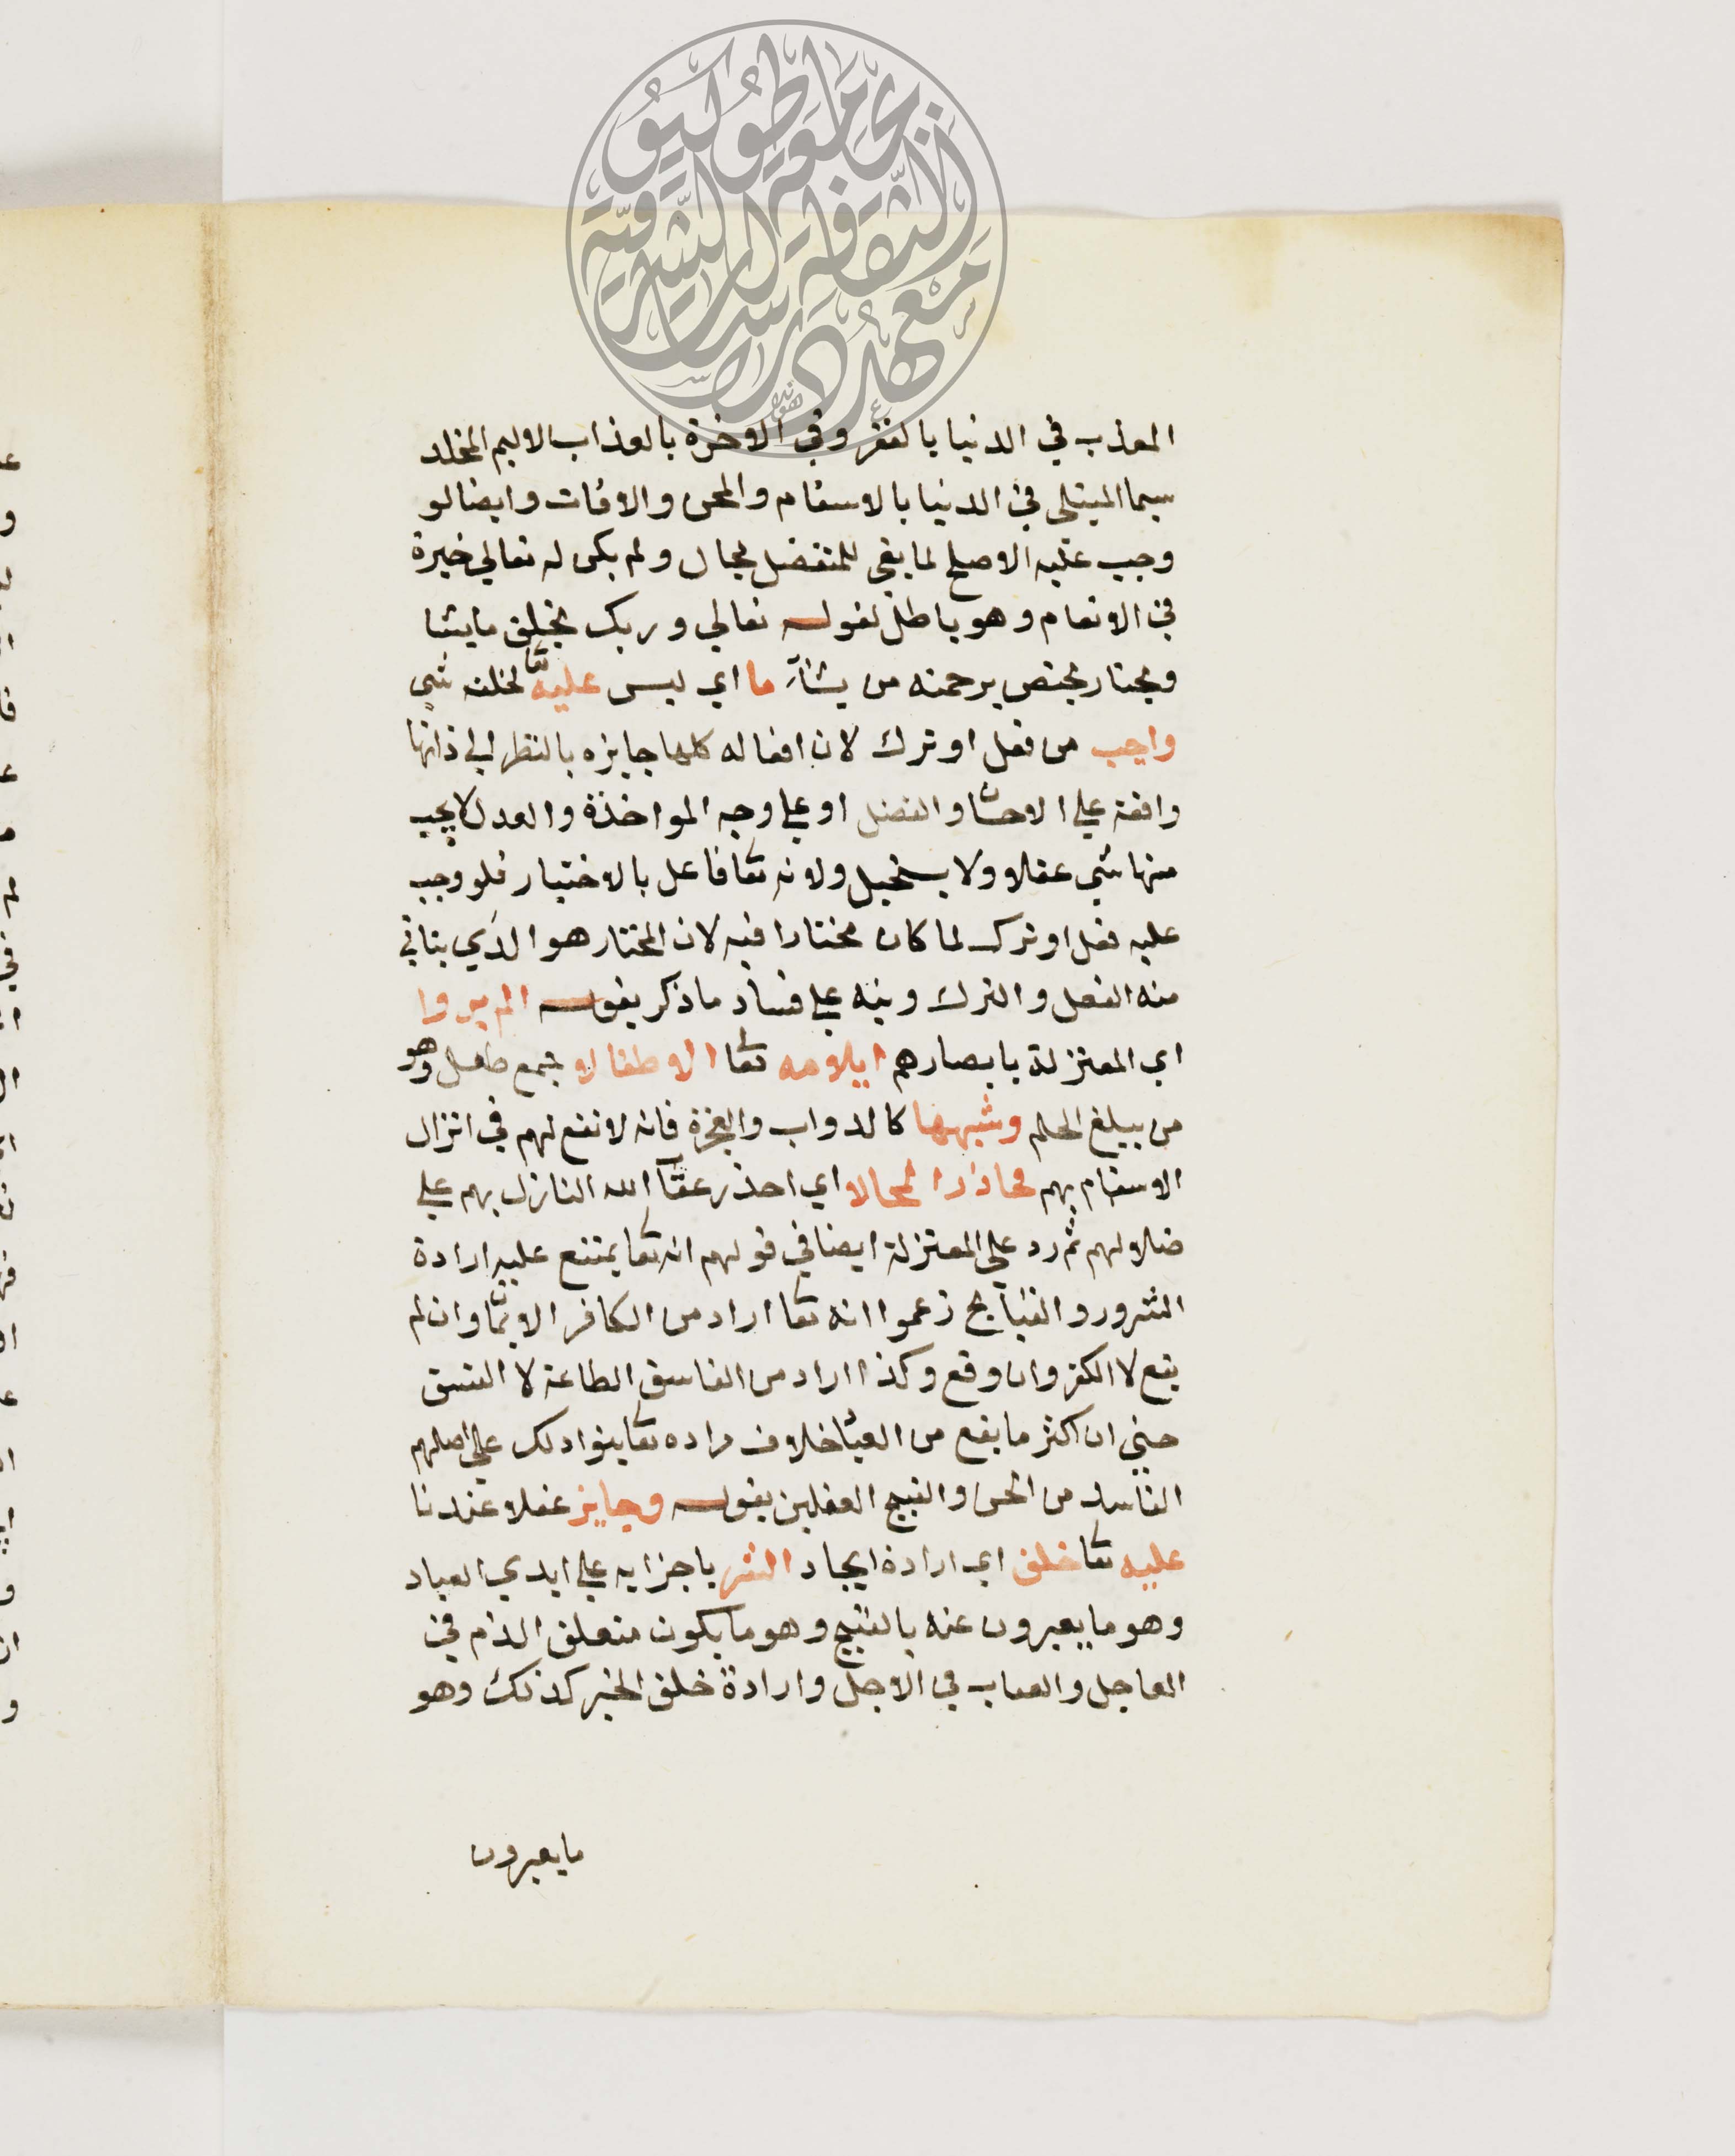 المعذب في الدنيا بالفقر وفي الاخرة بالعذاب الاليم المخلد
سيما المبتلى في الدنيا بالاسقام والمحن والافات وايضا لو
وجب عليه الاصلح لما بقي للتفضل مجال ولم يكن له تعالي خيرة
في الانعام وهو باطل لقوله تعالي وربك يخلق ما يشا
ويختار يختص برحمته من يشآء ما اي ليس عليه تعا لخلقه شي
واجب من فعل او ترك لان افعاله كلها جايزه بالنظر الي ذاتها
واقعة علي الاحسان والفضل او علي وجه المواخذة والعدل لا يجب
منها شي عقلا ولا يستحيل ولانه تعا فاعل بالاختيار فلو وجب
عليه فعل او ترك لما كان مختارا فيه لان المختار هو الذي يتاتي
منه الفعل والترك ونبه علي فساد ما ذكر بقوله الم يروا
اي المعتزلة بابصارهم ايلامه تعا الاطفالا جمع طفل وهو
من يبلغ الحلم وشبهها كالدواب والعجزة فانه لا نفع لهم في انزال
الاسقام بهم فحاذر المحالا اي احذر عقاب الله النازل بهم علي
ضلالهم ثم رد علي المعتزلة ايضا في قولهم انه تعا يمتنع عليه ارادة
الشرور والقبايح زعموا انه تعا اراد من الكافر الايمان وان لم
يقع لا الكفر وان وقع وكذا اراد من الفاسق الطاعة لا الفسق
حتي ان اكثر ما يقع من العباد خلاف مراده تعا بنوا ذلك علي اصلهم
الفاسد من الحسن والقبح العقلين بقوله وجايز عقلا عندنا
عليه تعا خلق اي ارادة ايجاد الشر باجزايه علي ايدي العباد
وهو ما يعبرون عنه بالقبيح وهو ما يكون متعلق الذم في
العاجل والعقاب في الاجل وارادة خلق الخير كذلك وهو
ما يعبرون